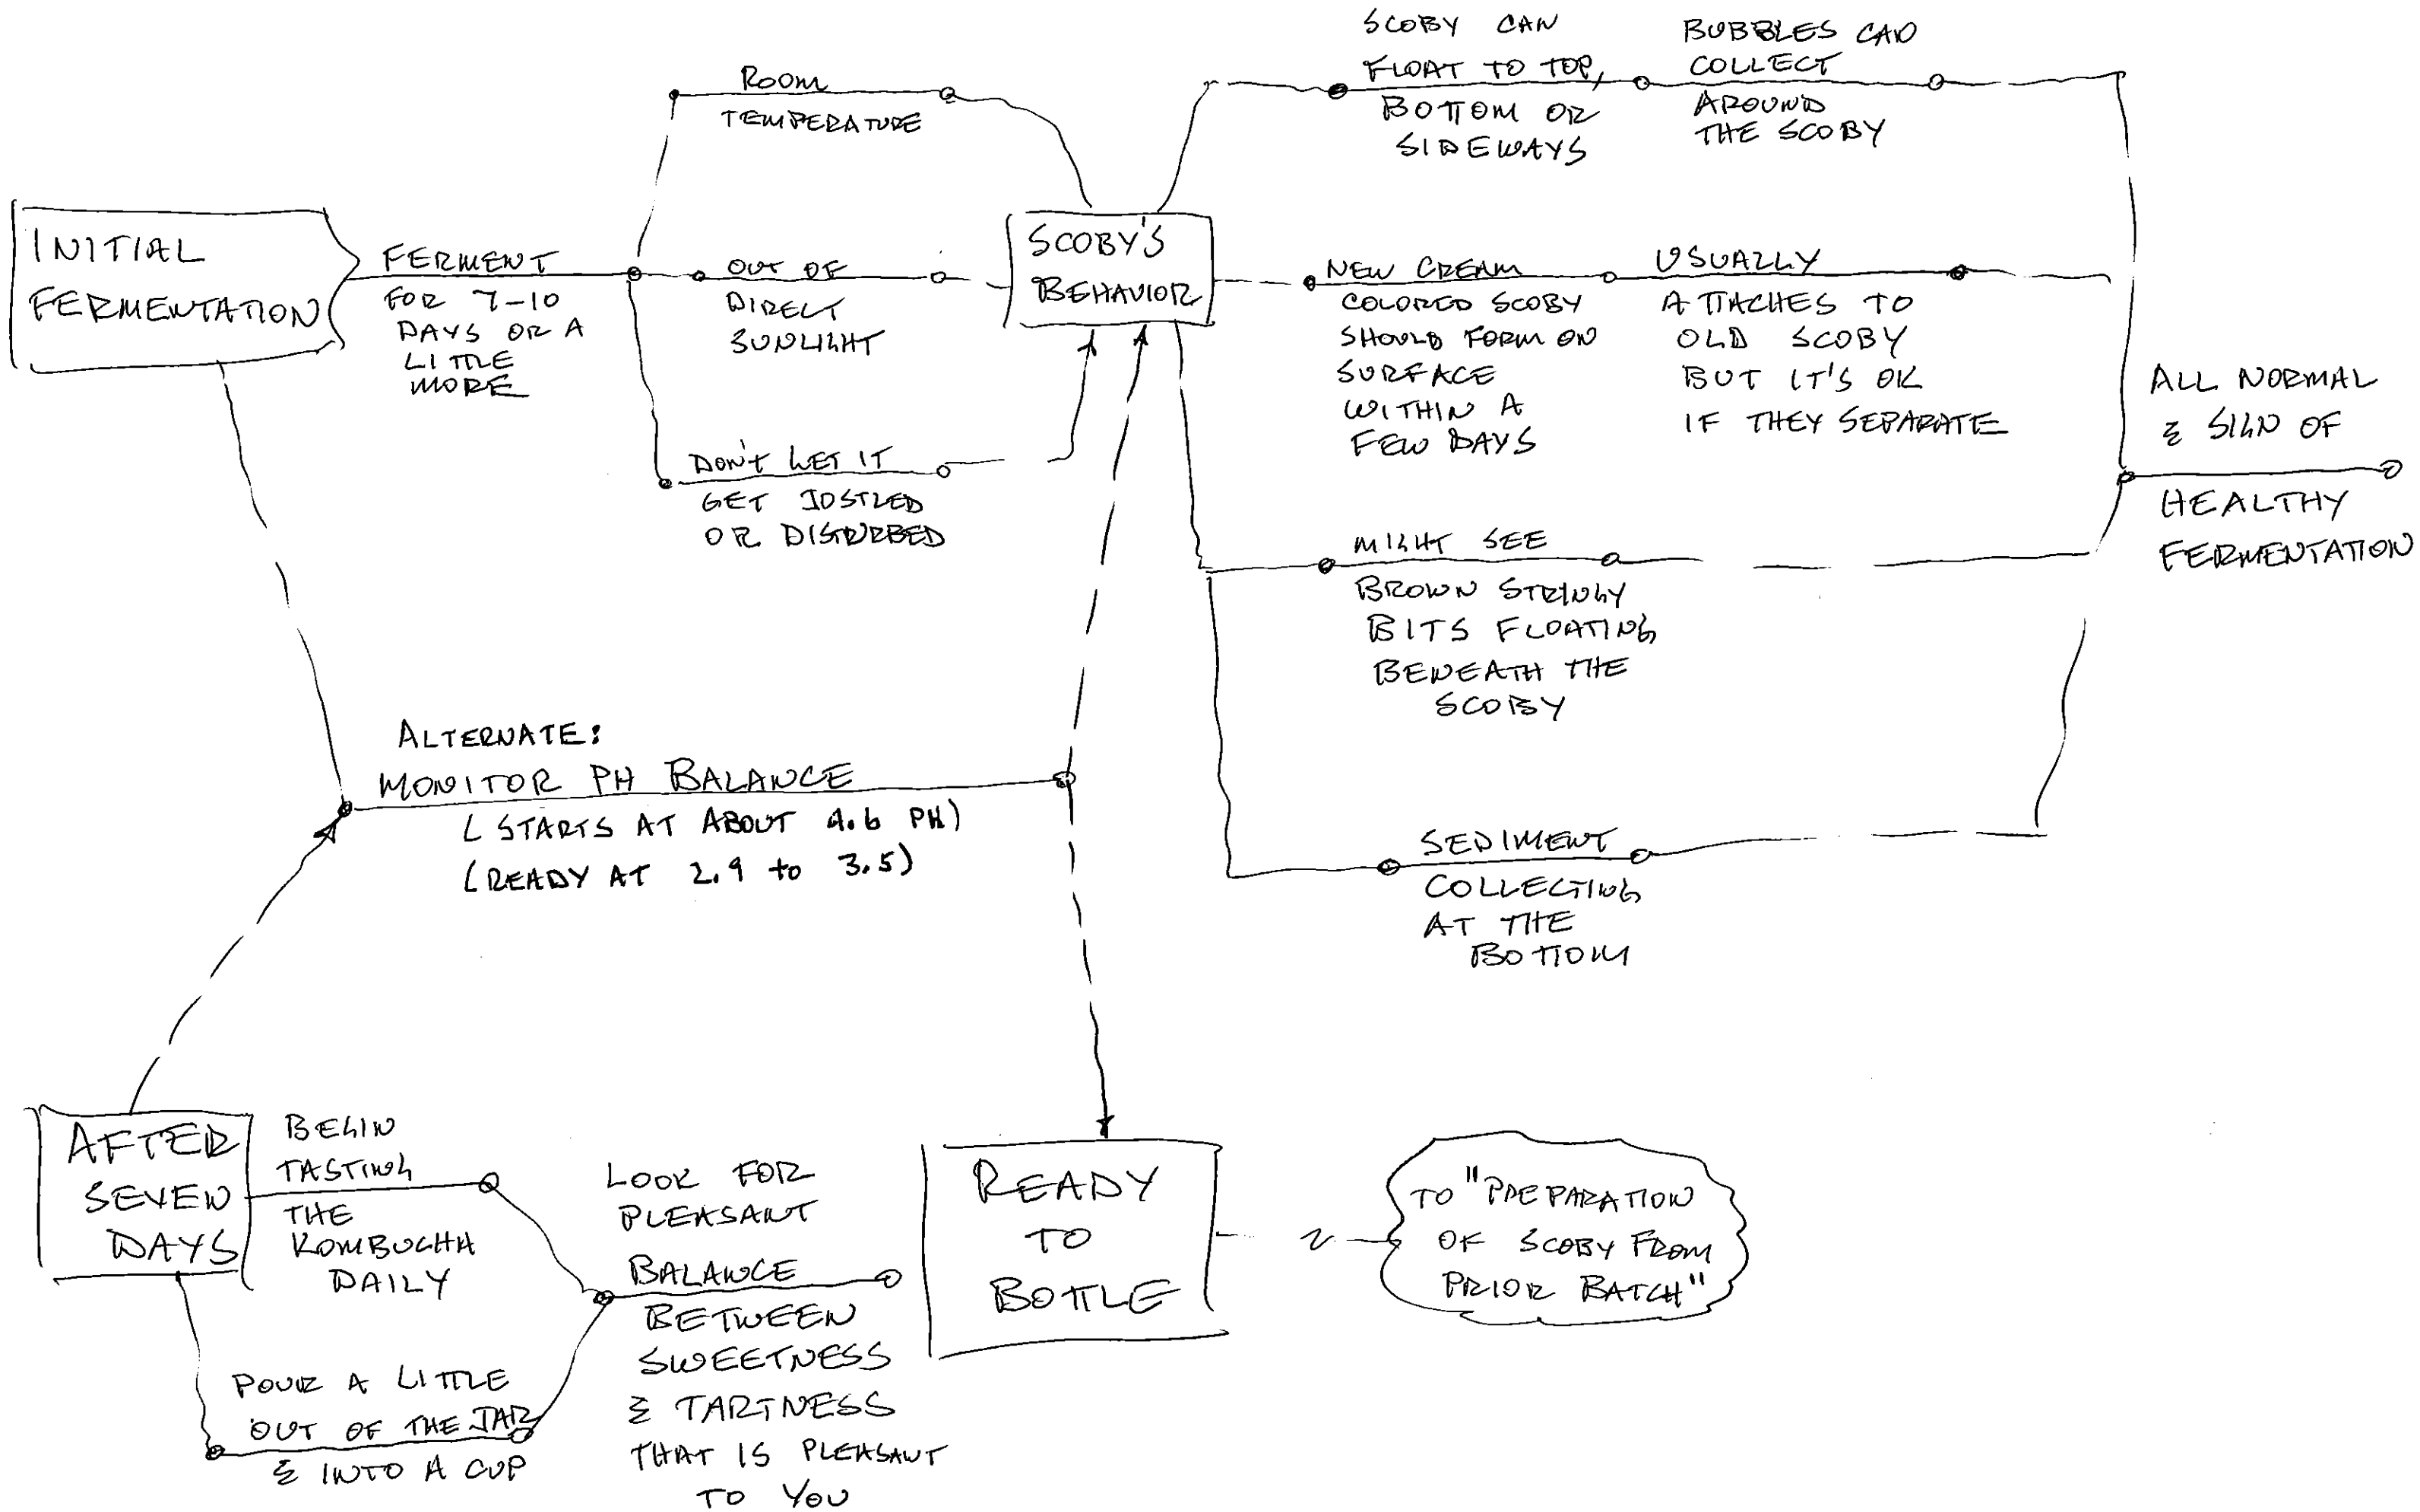 INITIAL
FERMENTATION
FERMENT
FOR 7-10
DAYS OR A
LITTLE
MORE
ROOM
TEMPERATURE
OUT OF
DIRECT
SUNLIGHT
DON'T LET IT
GET JOSTLED
OR DISTURBED
SCOBY'S
BEHAVIOR
SCOBY CAN
FLOAT TO TOP,
BOTTOM OR
SIDEWAYS
BUBBLES CAN
COLLECT
AROUND
THE SCOBY
NEW CREAM
COLORED SCOBY
SHOULD FORM ON
SURFACE
WITHIN A
FEW DAYS
USUALLY
ATTACHES TO
OLD SCOBY
BUT IT'S OK
IF THEY SEPARATE
MIGHT SEE
BROWN STRINGY
BITS FLOATING
BENEATH THE
SCOBY
SEDIMENT
COLLECTING
AT THE
BOTTOM
ALL NORMAL
& SIGN OF
HEALTHY
FERMENTATION
ALTERNATE:
MONITOR PH BALANCE
(STARTS AT ABOUT 4.6 PH)
(READY AT 2.9 to 3.5)
AFTER
SEVEN
DAYS
BEGIN
TASTING
THE
KOMBUCHA
DAILY
POUR A LITTLE
OUT OF THE JAR
& INTO A CUP
LOOK FOR
PLEASANT
BALANCE
BETWEEN
SWEETNESS
& TARTNESS
THAT IS PLEASANT
TO YOU
READY
TO
BOTTLE
TO "PREPARATION
OF SCOBY FROM
PRIOR BATCH"